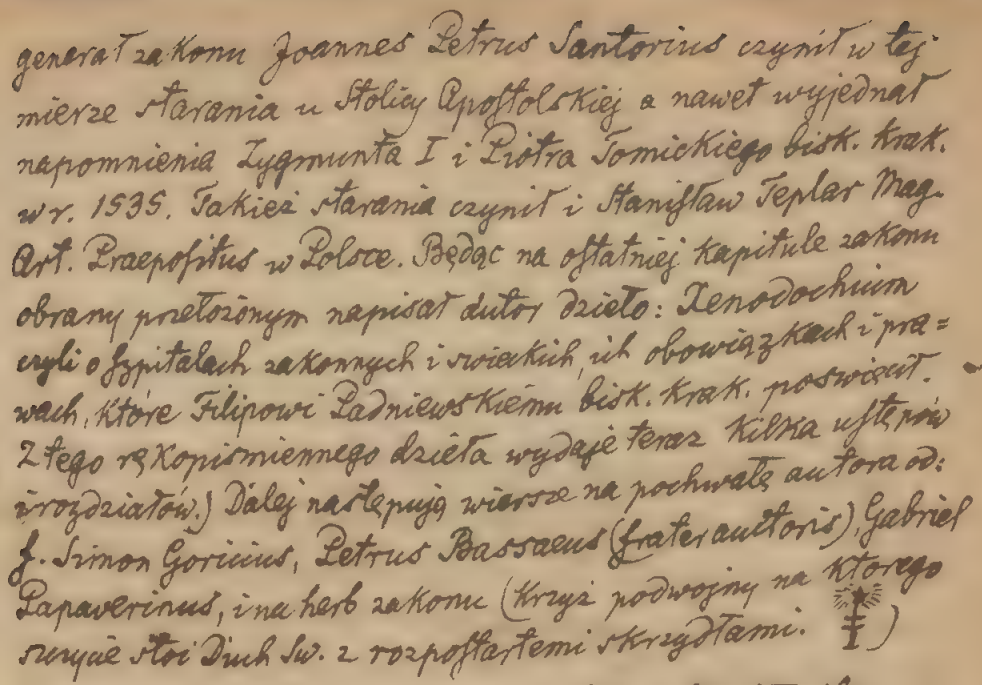 generał zakonu Joannes Petrus Santorius czynił w tej
mierze starania u Stolicy Apostolskiej a nawet wyjednał
napomnienia Zygmunta I i Piotra Tomickiego bisk. krak.
w r. 1535. Takież starania czynił i Stanisław Teplar Mag.
Art. Praepositus w Polsce. Będąc na ostatniej kapitule zakonu
obrany przełożonym napisał autor dzieło: Xenodochium
czyli o szpitalach zakonnych i świeckich, ich obowiązkach i pra=
wach, które Filipowi Padniewskiemu bisk. krak. poswięcił.
Z tego rękopismiennego dzieła wydaje teraz kilka ustępów
i rozdziałów.) Dalej następują wiersze na pochwałę autora od:
f. Simon Goricius, Petrus Bassaeus (frater auctoris), Gabriel
Papaverinus, i na herb zakonu (krzyż podwojny na ktorego
szczycie stoi Duch Sw. z rozpostartemi skrzydłami. )